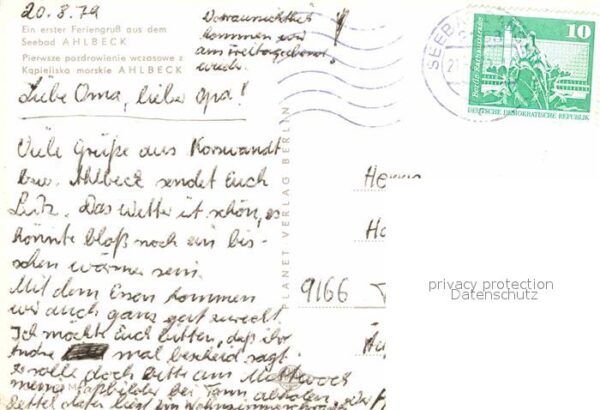 20.8.79
Ein erster Feriengruß aus dem
Seebad AHLBECK
Pierwsze pozdrowienie wczasowe z
Kąpieliska morskie AHLBECK
Voraussichtlich
kommen wir
am Freitagabend
wieder.
Liebe Oma, lieber Opa!
Viele Grüße aus Korswandt
bzw. Ahlbeck sendet Euch
Lutz. Das Wetter ist schön, es
könnte bloß noch ein bis-
schen wärmer sein.
Mit dem Essen kommen
wir auch ganz gut zurecht.
Ich möchte Euch bitten, daß ihr
Andre mal bescheid sagt
er solle doch bitte am Mittwoch
meine Paßbilder bei abholen,
Zettel dafür liegt im
PLANET VERLAG BERLIN
SEEBA
10
DEUTSCHE DEMOKRATISCHE REPUBLIK
He
Ha
9166
privacy protection
Datenschutz